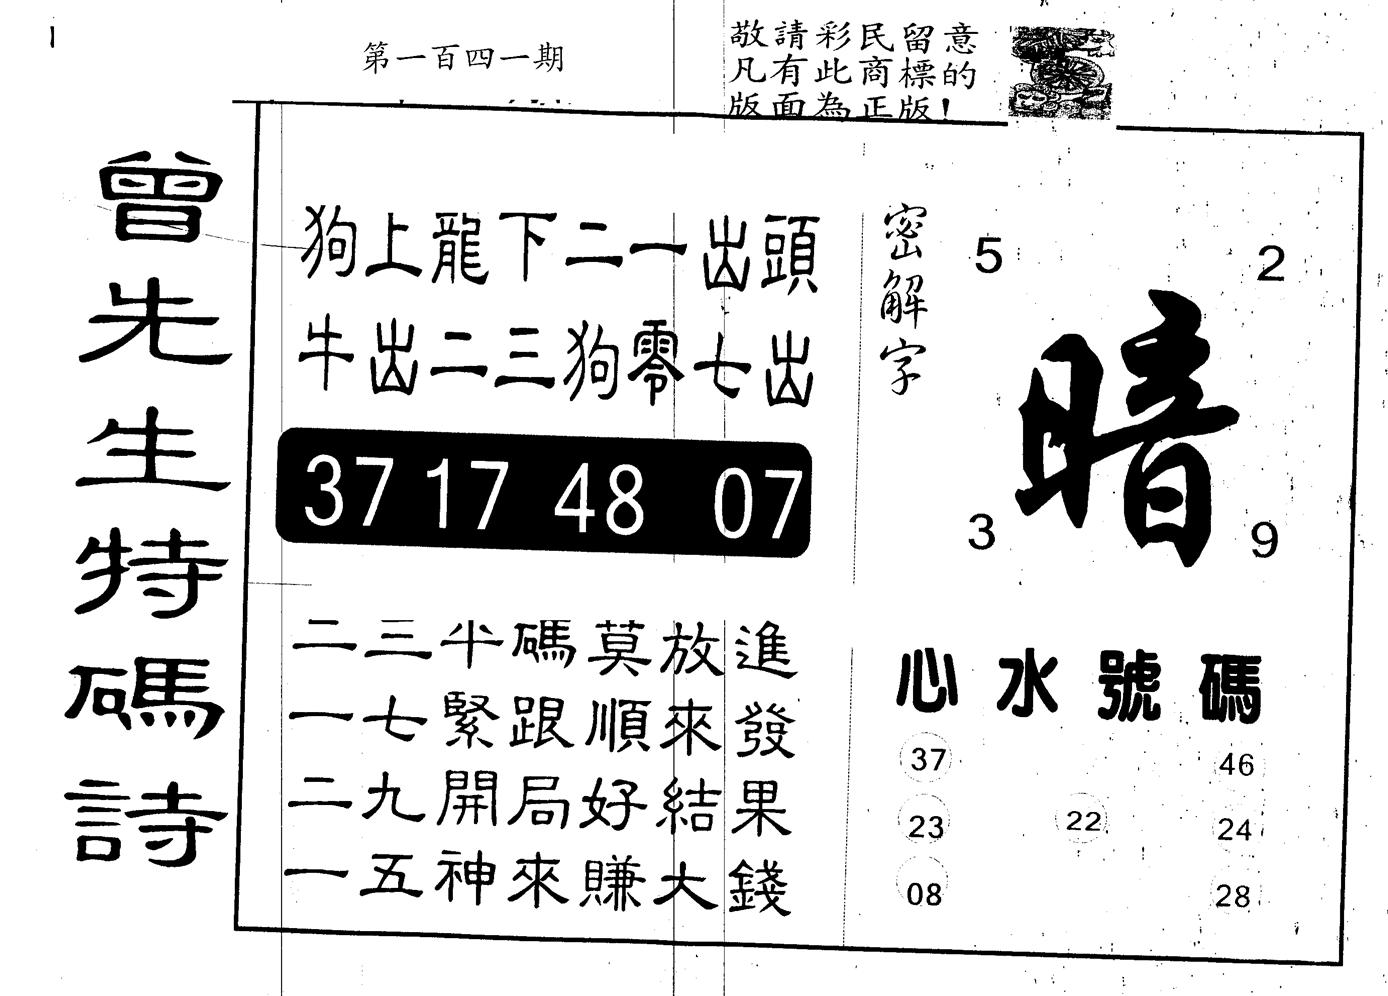 第一百四一期
敬請彩民留意
凡有此商標的
版面為正版！
曾先生特碼詩
狗上龍下二一出頭
牛出二三狗零七出
37 17 48 07
二三半碼莫放進
一七緊跟順來發
二九開局好結果
一五神來賺大錢
密解字
5 2
暗
3 9
心水號碼
37 46
23 22 24
08 28